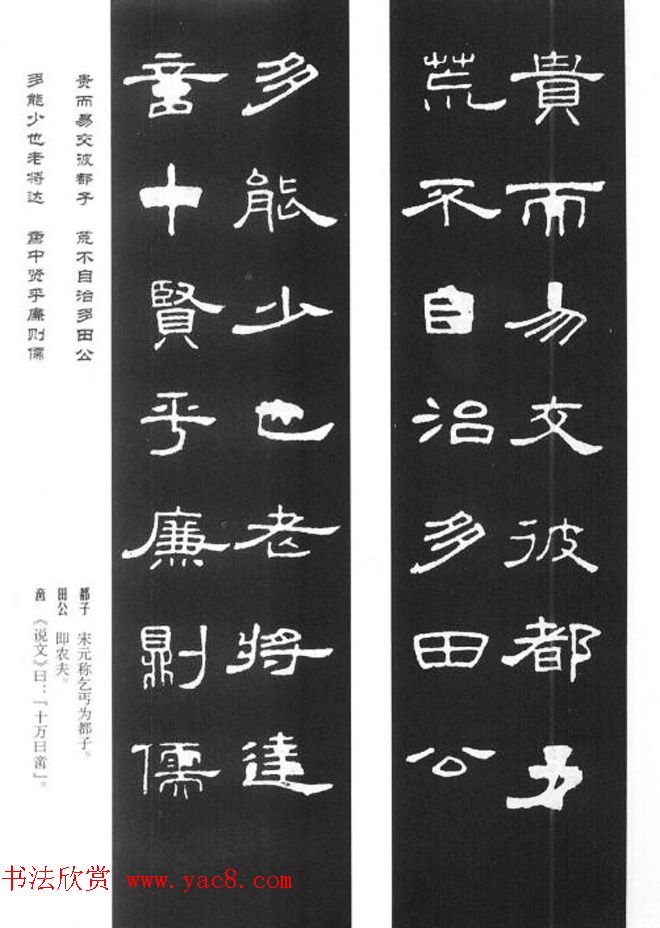 貴而易交彼都子
荒不自治多田公
多能少也老將達
𠶷十賢乎廉則儒
贵而易交波都子 荒不自治多田公
多能少也老将达 𠶷中贤乎廉则儒
都子 宋元称乞丐为都子。
田公 即农夫。
𠶷 《说文》曰：「十万曰𠶷」。
书法欣赏 www.yac8.com